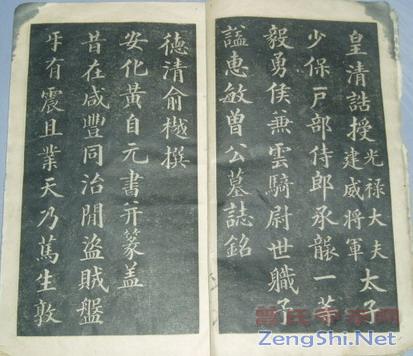 皇清誥授光祿大夫建威將軍太子
少保戶部侍郎承襲一等
毅勇侯兼雲騎尉世職予
謚惠敏曾公墓誌銘
德清俞樾撰
安化黃自元書并篆蓋
昔在咸豐同治閒盜賊盤
牙有震且業天乃篤生敦
ZengShi.Net